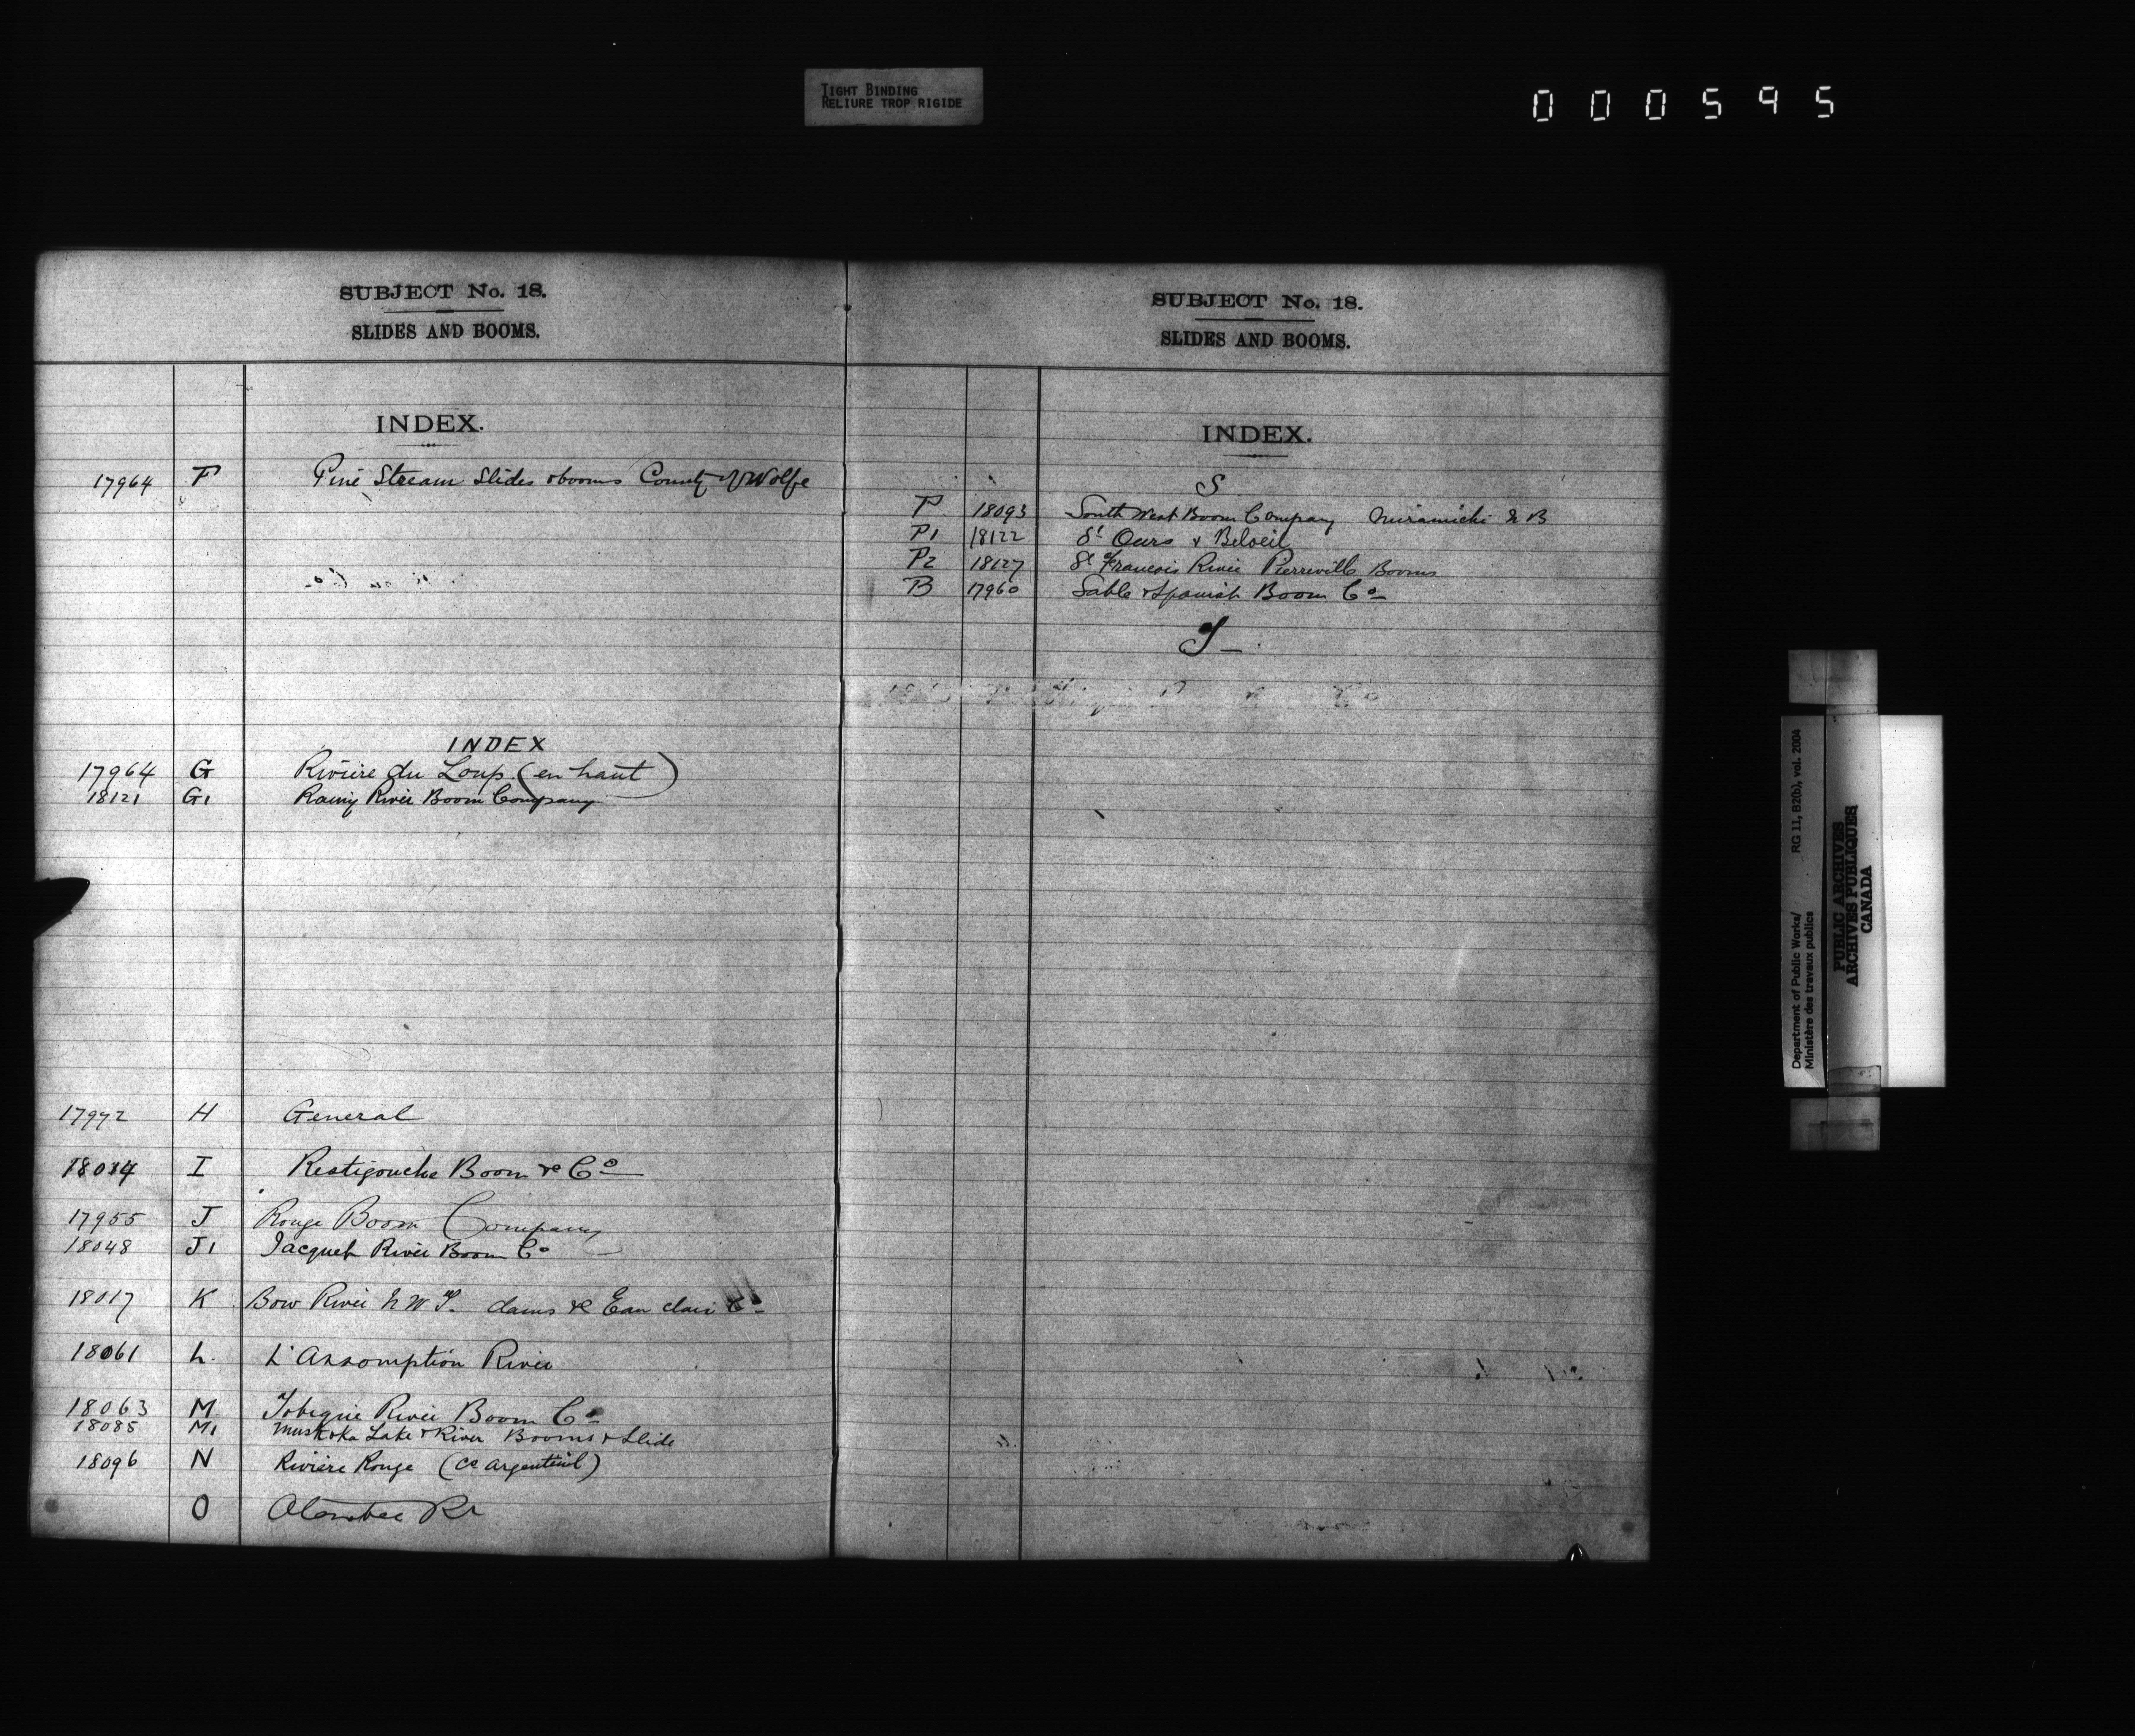 TIGHT BINDING
RELIURE TROP RIGIDE
000595
SUBJECT No. 18.
SLIDES AND BOOMS.
INDEX.
17964 F Pine Stream Slides & booms County of Wolfe
INDEX
17964 G Rivière du Loup (en haut)
18121 G1 Rainy River Boom Company
17972 H General
18034 I Restigouche Boom &c Co
17955 J Rouge Boom Company
18048 J1 Jacquet River Boom Co
18017 K Bow River N W T. dams &c Eau claire Co
18061 L. L'Assomption River
18063 M Tobique River Boom Co
18085 M1 Muskoka Lake & River Booms & Slide
18096 N Rivière Rouge (Co Argenteuil)
O Otonabee Rr
SUBJECT No. 18.
SLIDES AND BOOMS.
INDEX.
S
P 18093 South West Boom Company Miramichi N B
P1 18122 St Ours & Beloeil
P2 18127 St Francois River Pierreville Booms
B 17960 Sable & Spanish Boom Co
T
Department of Public Works/ RG 11, B2(b), vol. 2004
Ministère des travaux publics
PUBLIC ARCHIVES
ARCHIVES PUBLIQUES
CANADA